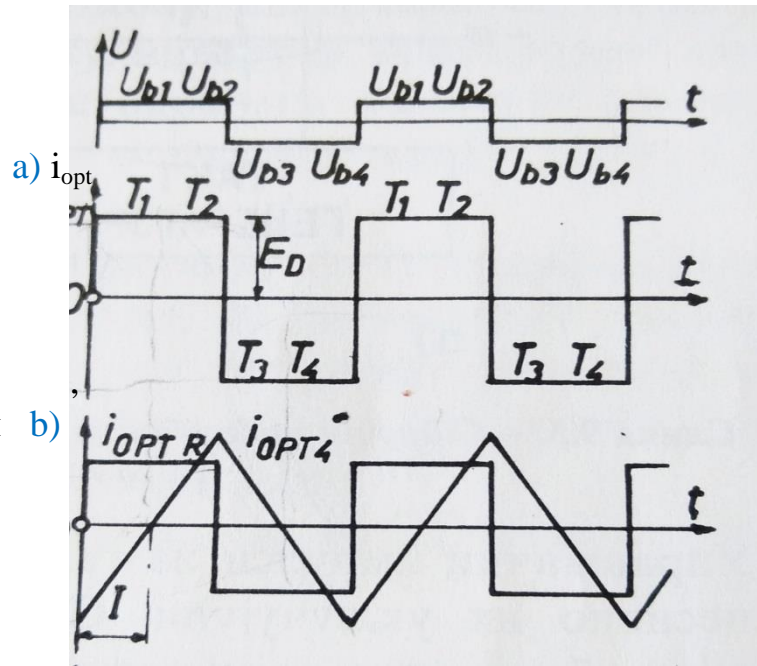 U
U_b1 U_b2 U_b1 U_b2 t
U_b3 U_b4 U_b3 U_b4
a) i_opt
T_1 T_2 T_1 T_2
E_D
t
T_3 T_4 T_3 T_4
,
b) i_OPT R i_OPT4
t
I